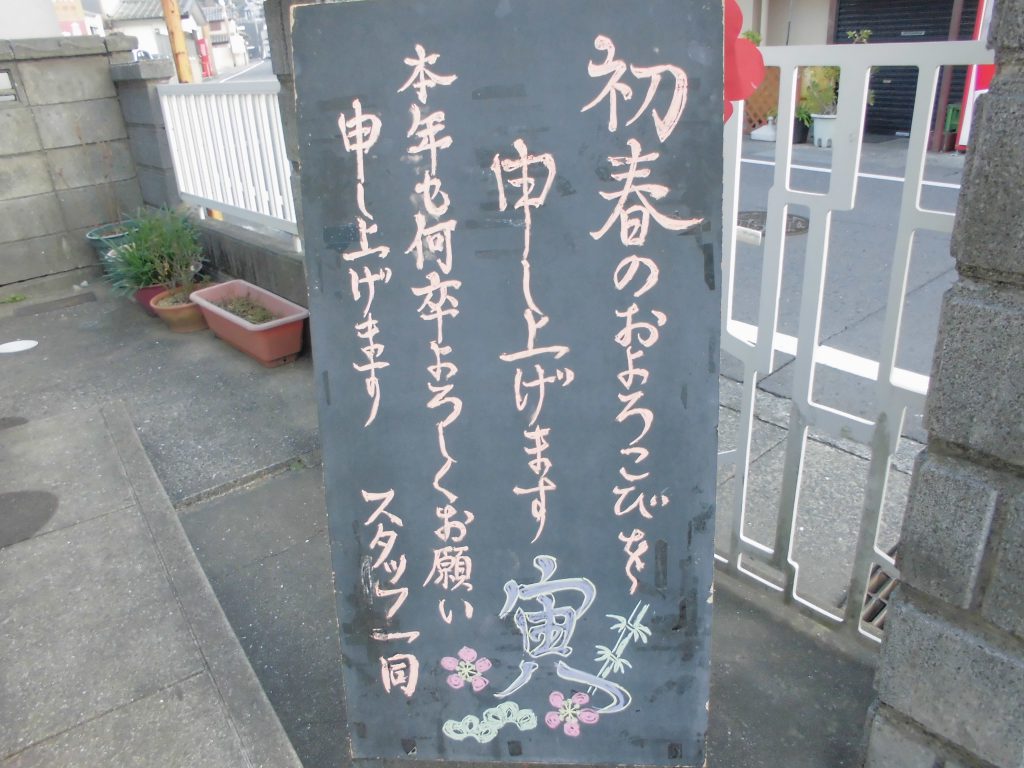 初春のおよろこびを
申し上げます
寅
本年も何卒よろしくお願い
申し上げます
スタッフ一同